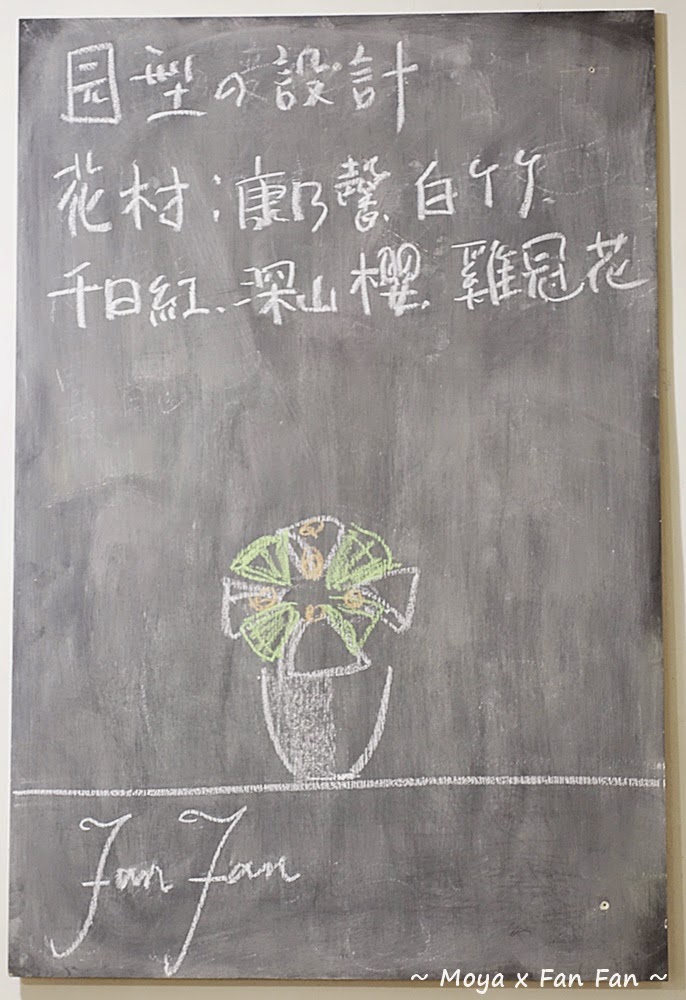 园型の設計
花材:康乃馨、白竹、
千日紅、深山櫻、雞冠花
Fan Fan
~ Moya x Fan Fan ~